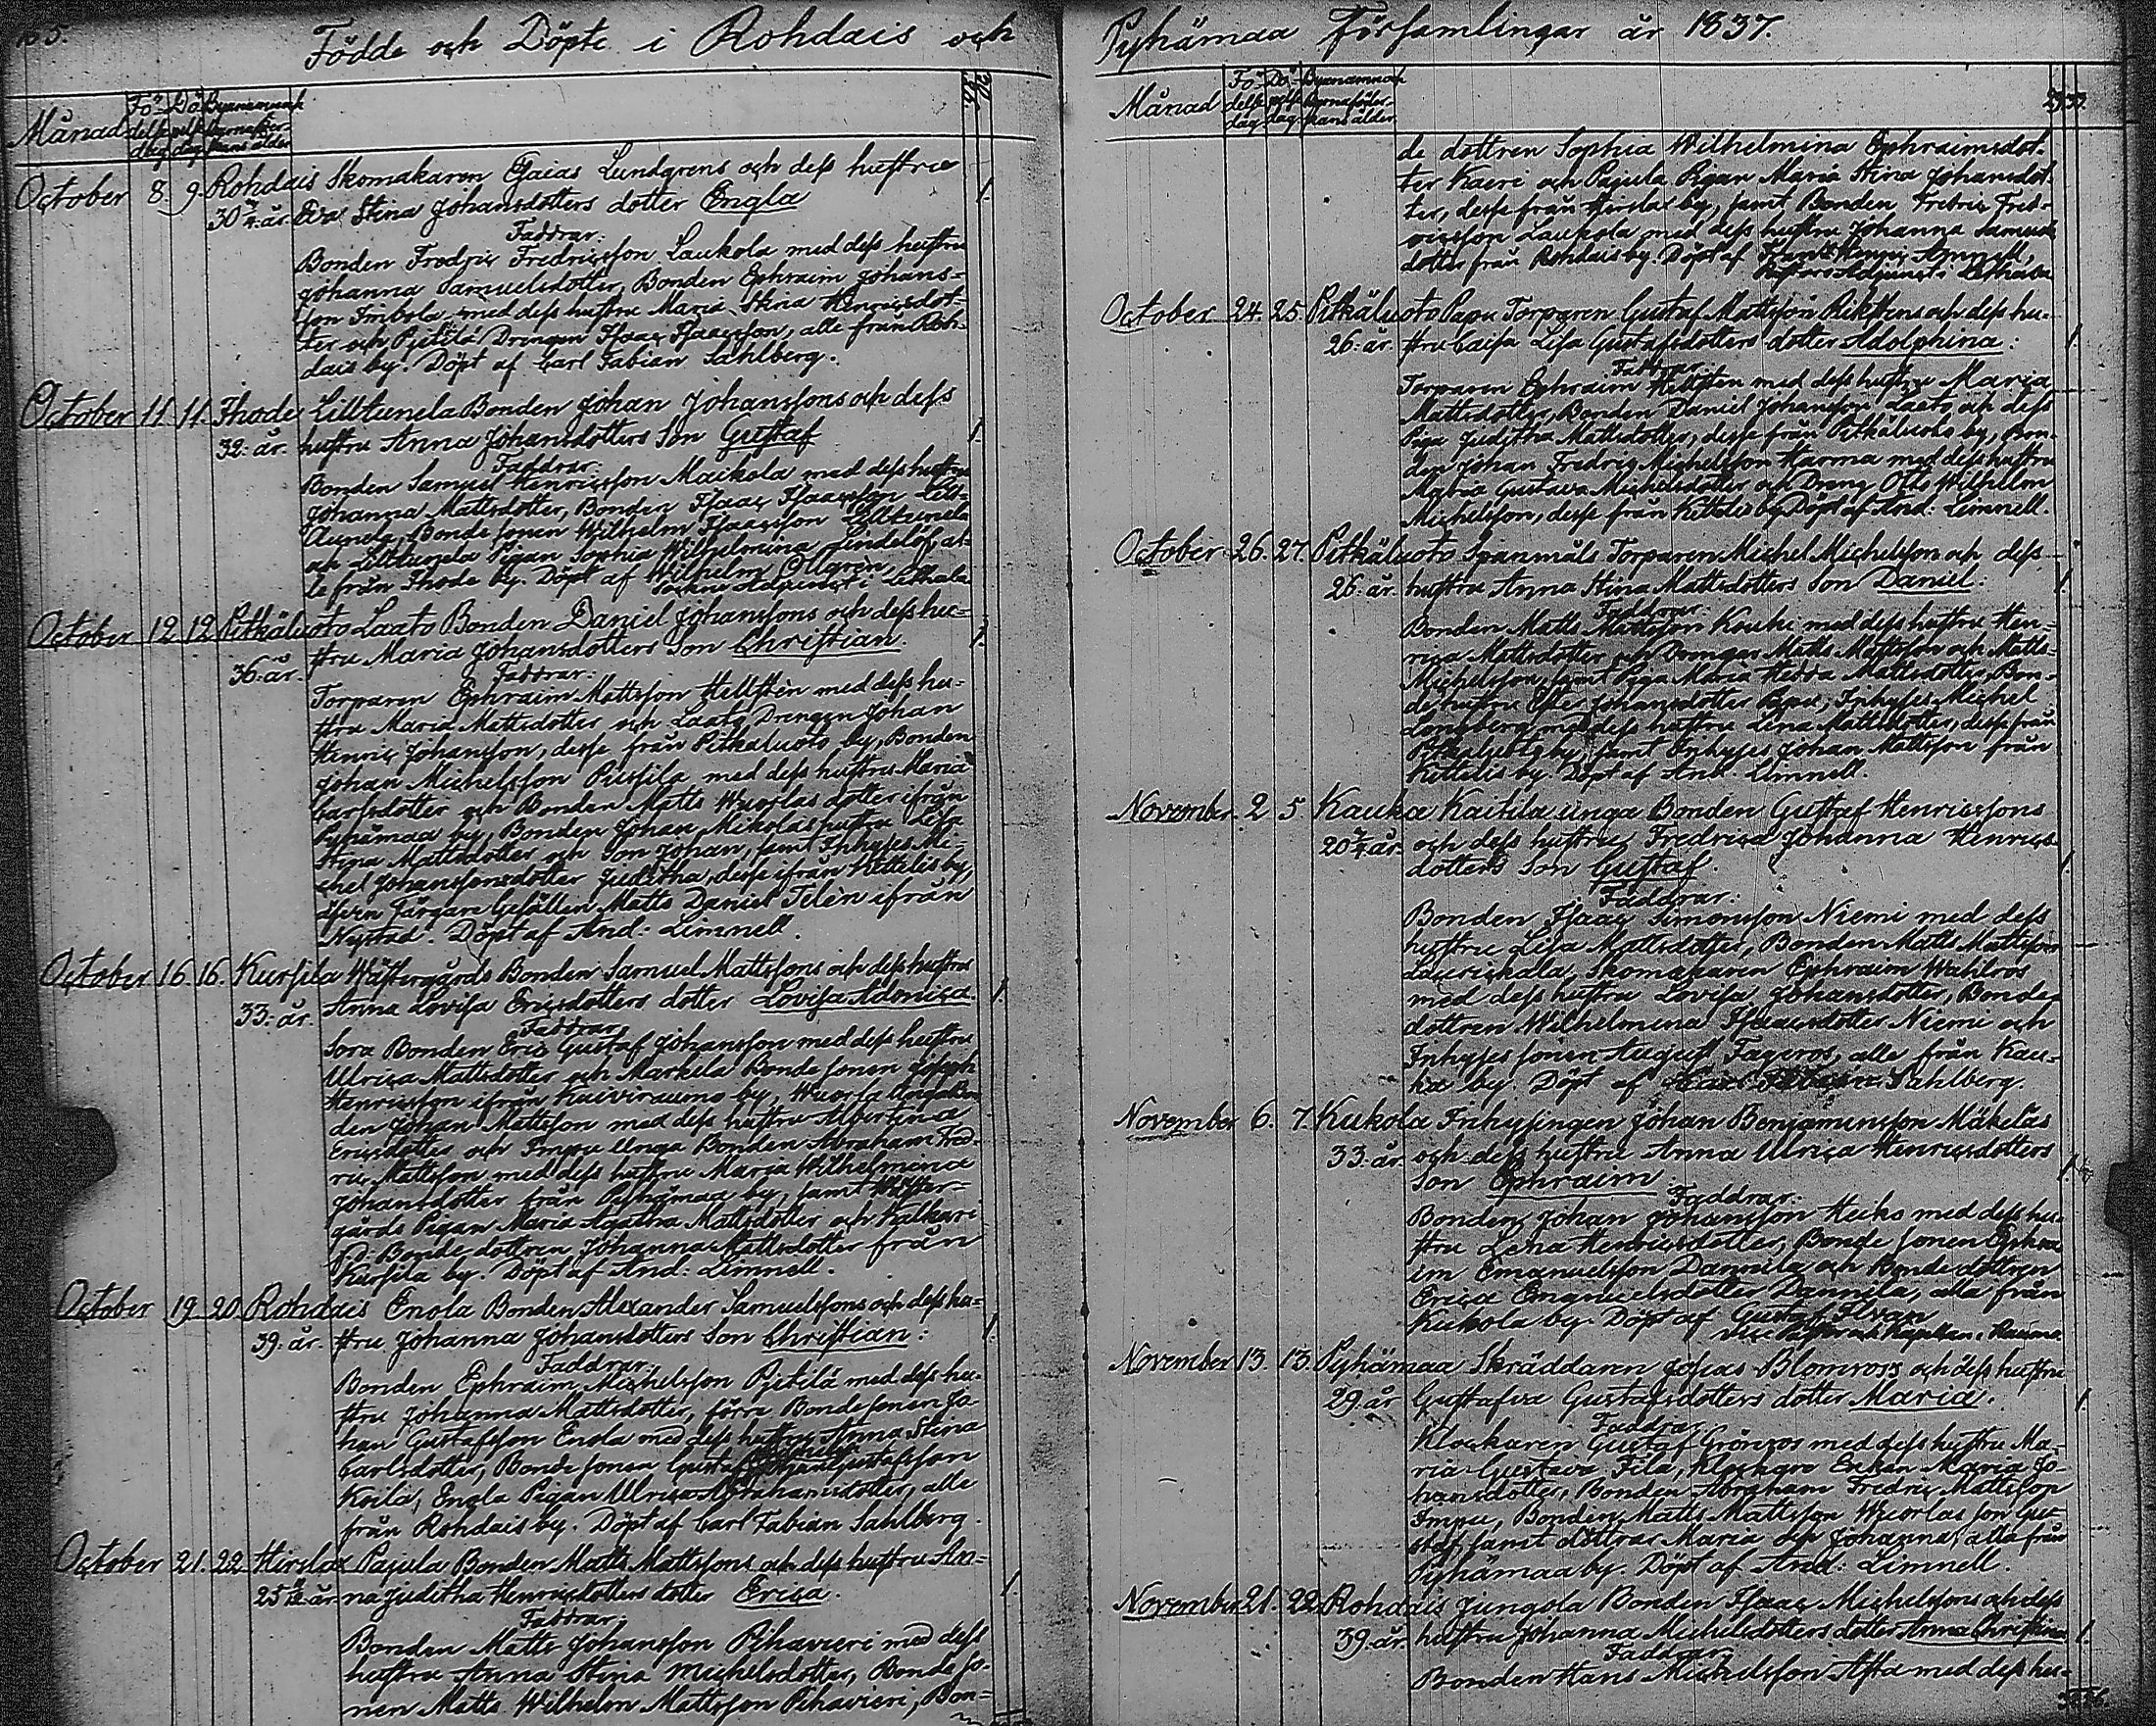 Födde och Döpte i Rohdais och
Månad Fö- delse dag Dö- pelse dag Byanamn och Barnaföder- skans ålder
October 8. 9. Rohdais Skomakaren Esaias Lundgrens och dess hustru
30 3/4 år. Eva Stina Johansdotters dotter Engla 1.
Faddrar:
Bonden Fredric Fredricsson Laukola med dess hustru
Johanna Samuelsdotter, Bonden Ephraim Johans-
son Imbola med dess hustru Maria Stina Henricsdot-
ter och Pietilä Drengen Isaac Isaacsson, alle från Roh-
dais by. Döpt af Carl Fabian Sahlberg.
October 11. 11. Ihode Lilltunela Bonden Johan Johanssons och dess
32. år. hustru Anna Johansdotters Son Gustaf 1.
Faddrar:
Bonden Samuel Henricsson Maikola med dess hustru
Johanna Mattsdotter, Bonden Isaac Isaacsson Lill-
Aunela, Bonde sonen Wilhelm Isaacsson Lilltunela
och Lilltunela Pigan Sophia Wilhelmina Lindelöf, al-
le från Ihode by. Döpt af Wilhelm Ollgren,
Sockne Adjunct i Letthala
October 12 12 Pitkäluoto Laato Bonden Daniel Johanssons och dess hu-
36. år. stru Maria Johansdotters Son Christian. 1.
Faddrar:
Torparen Ephraim Mattsson Hellstén med dess hu-
stru Maria Mattsdotter och Laato Drengen Johan
Henric Johansson, desse från Pitkäluoto by, Bonden
Johan Michelsson Pursila med dess hustru Maria
Carlsdotter och Bonden Matts Wuorlas dotter ifrån
Pyhämaa by, Bonden Johan Mikolas hustru Lisa
Stina Mattsdotter och Son Johan, samt Inhyses Mi-
chel Johanssons dotter Juditha, desse ifrån Kettelis by,
äfven Färgare Gesällen Matts Daniel Telén ifrån
Nystad. Döpt af And: Limnell.
October 16. 16. Kursila Wästergårds Bonden Samuel Mattssons och dess hustru
33. år. Anna Lovisa Ericsdotters dotter Lovisa Adonica. 1.
Faddrar
Sora Bonden Eric Gustaf Johansson med dess hustru
Ulrica Mattsdotter och Markula Bonde sonen Joseph
Henricsson ifrån Kaiviraumo by, Wuorla Unga Bon
den Johan Mattsson med dess hustru Albertina
Ericsdotter och Impu Unga Bonden Abraham Fred-
ric Mattsson med dess hustru Maria Wilhelmina
Johansdotter från Pyhämaa by, samt Wäster-
gårds Pigan Maria Agatha Mattsdotter och Kalkari
Bonde dottren Johanna Mattsdotter från
Kursila by. Döpt af And: Limnell.
October 19 20 Rohdais Enola Bonden Alexander Samuelssons och dess hu-
39. år. stru Johanna Johansdotters Son Christian: 1.
Faddrar
Bonden Ephraim Michelsson Pjetilä med dess hu-
stru Johanna Mattsdotter, förra Bonde sonen Jo-
han Gustafsson Enola med dess hustru Anna Stina
Carlsdotter, Bonde sonen Gustafsson
Koila, Enola Pigan Ulrica Abrahamsdotter, alle
från Rohdais by. Döpt af Carl Fabian Sahlberg.
October 21. 22 Hirslax Pajula Bonden Matts Mattssons och dess hustru An-
25 år na Juditha Henricsdotters dotter Erica. 1.
Faddrar:
Bonden Matts Johansson Pihavieri med dess
hustru Anna Stina Michelsdotter, Bonde so-
nen Matts Wilhelm Mattsson Pihavieri, Bon-
Pyhämaa Församlingar år 1837.
Månad Fö- delse dag Dö- pelse dag Byanamn och Barnaföder- skans ålder
de dottren Sophia Wilhelmina Ephraimsdot-
ter Kaeri och Pajula Pigan Maria Stina Johansdot-
ter, desse från Hirslax by, samt Bonden Fredric Fred-
ricsson Laukola med dess hustru Johanna Samuels
dotter från Rohdais by. Döpt af Henric
Adjunct i Letthala
October 24. 25 Pitkäluoto Papu Torparen Gustaf Mattsson Rikstens och dess hu-
26. år. stru Caisa Lisa Gustafsdotters dotter Adolphina: 1.
Faddrar
Torparen Ephraim Hellsten med dess hustru Maria
Mattsdotter, Bonden Daniel Johansson Laato och dess
Piga Juditha Mattsdotter, desse från Pitkäluoto by, Bon-
den Johan Fredric Michelsson Harma med dess hustru
Maria Gustava Michelsdotter och Dreng Otto Wilhelm
Michelsson, desse från Kettelis by Döpt af And: Limnell.
October 26. 27. Pitkäluoto Spanmåls Torparen Michel Michelsson och dess
26. år. hustru Anna Stina Mattsdotters Son Daniel: 1.
Faddrar:
Bonden Matts Mattsson Kouki med dess hustru Hen-
rica Mattsdotter och Drengar Matts Mattsson och Matts
Michelsson, samt Piga Maria Hedda Mattsdotter, Bon-
de hustru Ester Johansdotter Papu, Inhyses Michel
Longberg med dess hustru Lena Mattsdotter, desse från
Pitkäluoto by, samt Inhyses Johan Mattsson från
Kettelis by. Döpt af And. Limnell.
November 2 5 Kauka Kaitila unga Bonden Gustaf Henricssons
20 3/4 år. och dess hustru Fredrica Johanna Henrics-
dotters Son Gustaf. 1.
Faddrar:
Bonden Isaac Simonsson Niemi med dess
hustru Lisa Mattsdotter, Bonden Matts Mattsson
Lauriskala, Skomakaren Ephraim Wahlros
med dess hustru Lovisa Johansdotter, Bonde
dottren Wilhelmina Isaacsdotter Niemi och
Inhyses sonen August Fageros, alle från Kau-
ka by. Döpt af Carl Fabian Sahlberg.
November 6. 7. Kukola Inhysingen Johan Benjaminsson Mäkeläs
33. år. och dess hustru Anna Ulrica Henricsdotters
Son Ephraim 1.
Faddrar:
Bonden Johan Johansson Heiko med dess hu-
stru Lena Henricsdotter, Bonde sonen Ephra
im Emanuelsson Dannila och Bonde dottren
Erica Emanuelsdotter Dannila, alla från
Kukola by. Döpt af Gustaf
vice Pastor och Kapellan i Raumo
November 13. 13. Pyhämaa Skräddaren Josias Blomross och dess hustru
29. år Gustafva Gustafsdotters dotter Maria. 1
Faddrar
Klockaren Gustaf Grönroos med dess hustru Ma-
ria Gustava Fila, Klockare Enkan Maria Jo-
hansdotter, Bonden Abraham Fredric Mattsson
Impu, Bonden Matts Mattsson Wuorlas son Gu-
staf samt döttrar Maria och Johanna, alla från
Pyhämaa by. Döpt af And: Limnell.
November 21. 22 Rohdais Jungola Bonden Isaac Michelssons och dess
39. år. hustru Johanna Michelsdotters dotter Anna Christina 1.
Faddrar
Bonden Hans Michelsson Asta med dess hu-